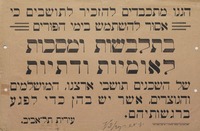 הננו מתכבדים להזכיר לתושבים כי
אסור להשתמש בימי הפורים
בתלבשת ומסכות
לאומיות ודתיות
של השכנים תושבי ארצנו, המושלמים
והנוצרים, אשר יש בהן כדי לפגע
ברגשותיהם.
עירית תל־אביב.